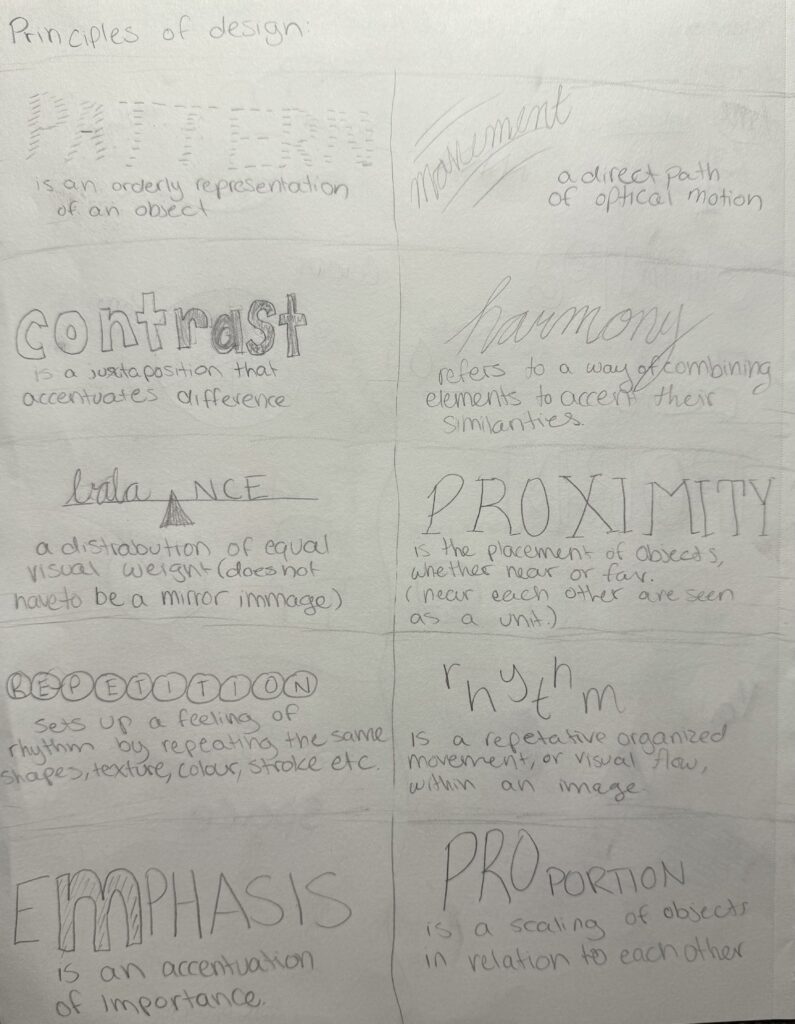 Principles of design:
PATTERN
is an orderly representation
of an object
movement
a direct path
of optical motion
contrast
is a juxtaposition that
accentuates difference
harmony
refers to a way of combining
elements to accent their
similarities.
balaNCE
a distrabution of equal
visual weight (does not
have to be a mirror immage)
PROXIMITY
is the placement of objects,
whether near or far.
(near each other are seen
as a unit.)
REPETITION
sets up a feeling of
rhythm by repeating the same
shapes, texture, colour, stroke etc.
rhythm
is a repetative organized
movement, or visual flow,
within an image.
EmPHASIS
is an accentuation
of importance.
PROPORTION
is a scaling of objects
in relation to each other